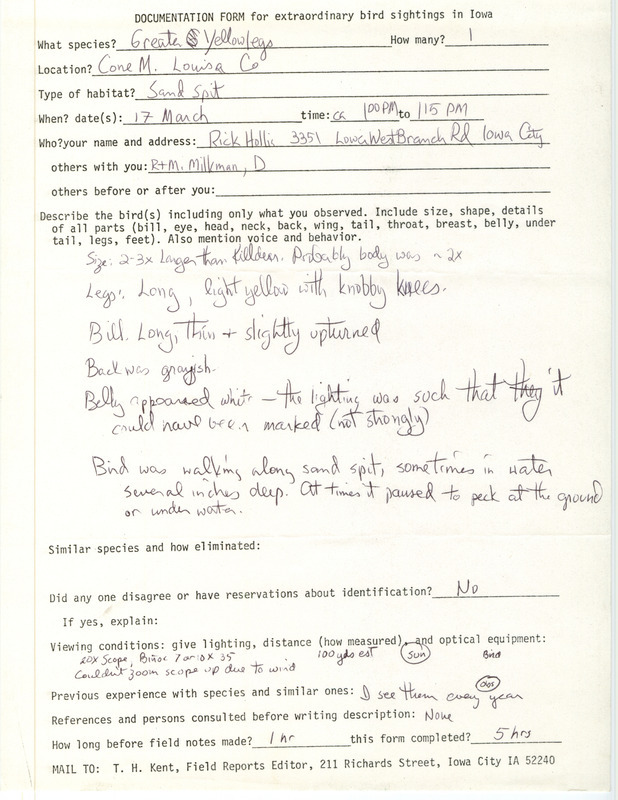 DOCUMENTATION FORM for extraordinary bird sightings in Iowa
What species? Greater Yellowlegs How many? 1
Location? Cone M. Louisa Co
Type of habitat? Sand Spit
When? date(s): 17 March time: ca 100 PM to 115 PM
Who? your name and address: Rick Hollis 3351 Lower West Branch Rd Iowa City
others with you: R+M. Milkman, D
others before or after you:
Describe the bird(s) including only what you observed. Include size, shape, details
of all parts (bill, eye, head, neck, back, wing, tail, throat, breast, belly, under
tail, legs, feet). Also mention voice and behavior.
Size: 2-3x Larger than Killdeer. Probably body was ~ 2x
Legs: Long, light yellow with knobby knees.
Bill. Long, thin + slightly upturned
Back was grayish.
Belly appeared white - the lighting was such that they it
could have been marked (not strongly)
Bird was walking along sand spit, sometimes in water
several inches deep. At times it paused to peck at the ground
or under water.
Similar species and how eliminated:
Did any one disagree or have reservations about identification? No
If yes, explain:
Viewing conditions: give lighting, distance (how measured), and optical equipment:
20X Scope, Binoc 7 or 10X 35 100 yds est Sun Bird
Couldn't zoom scope up due to wind obs
Previous experience with species and similar ones: I see them every year
References and persons consulted before writing description: None
How long before field notes made? 1 hr this form completed? 5 hrs
MAIL TO: T. H. Kent, Field Reports Editor, 211 Richards Street, Iowa City IA 52240